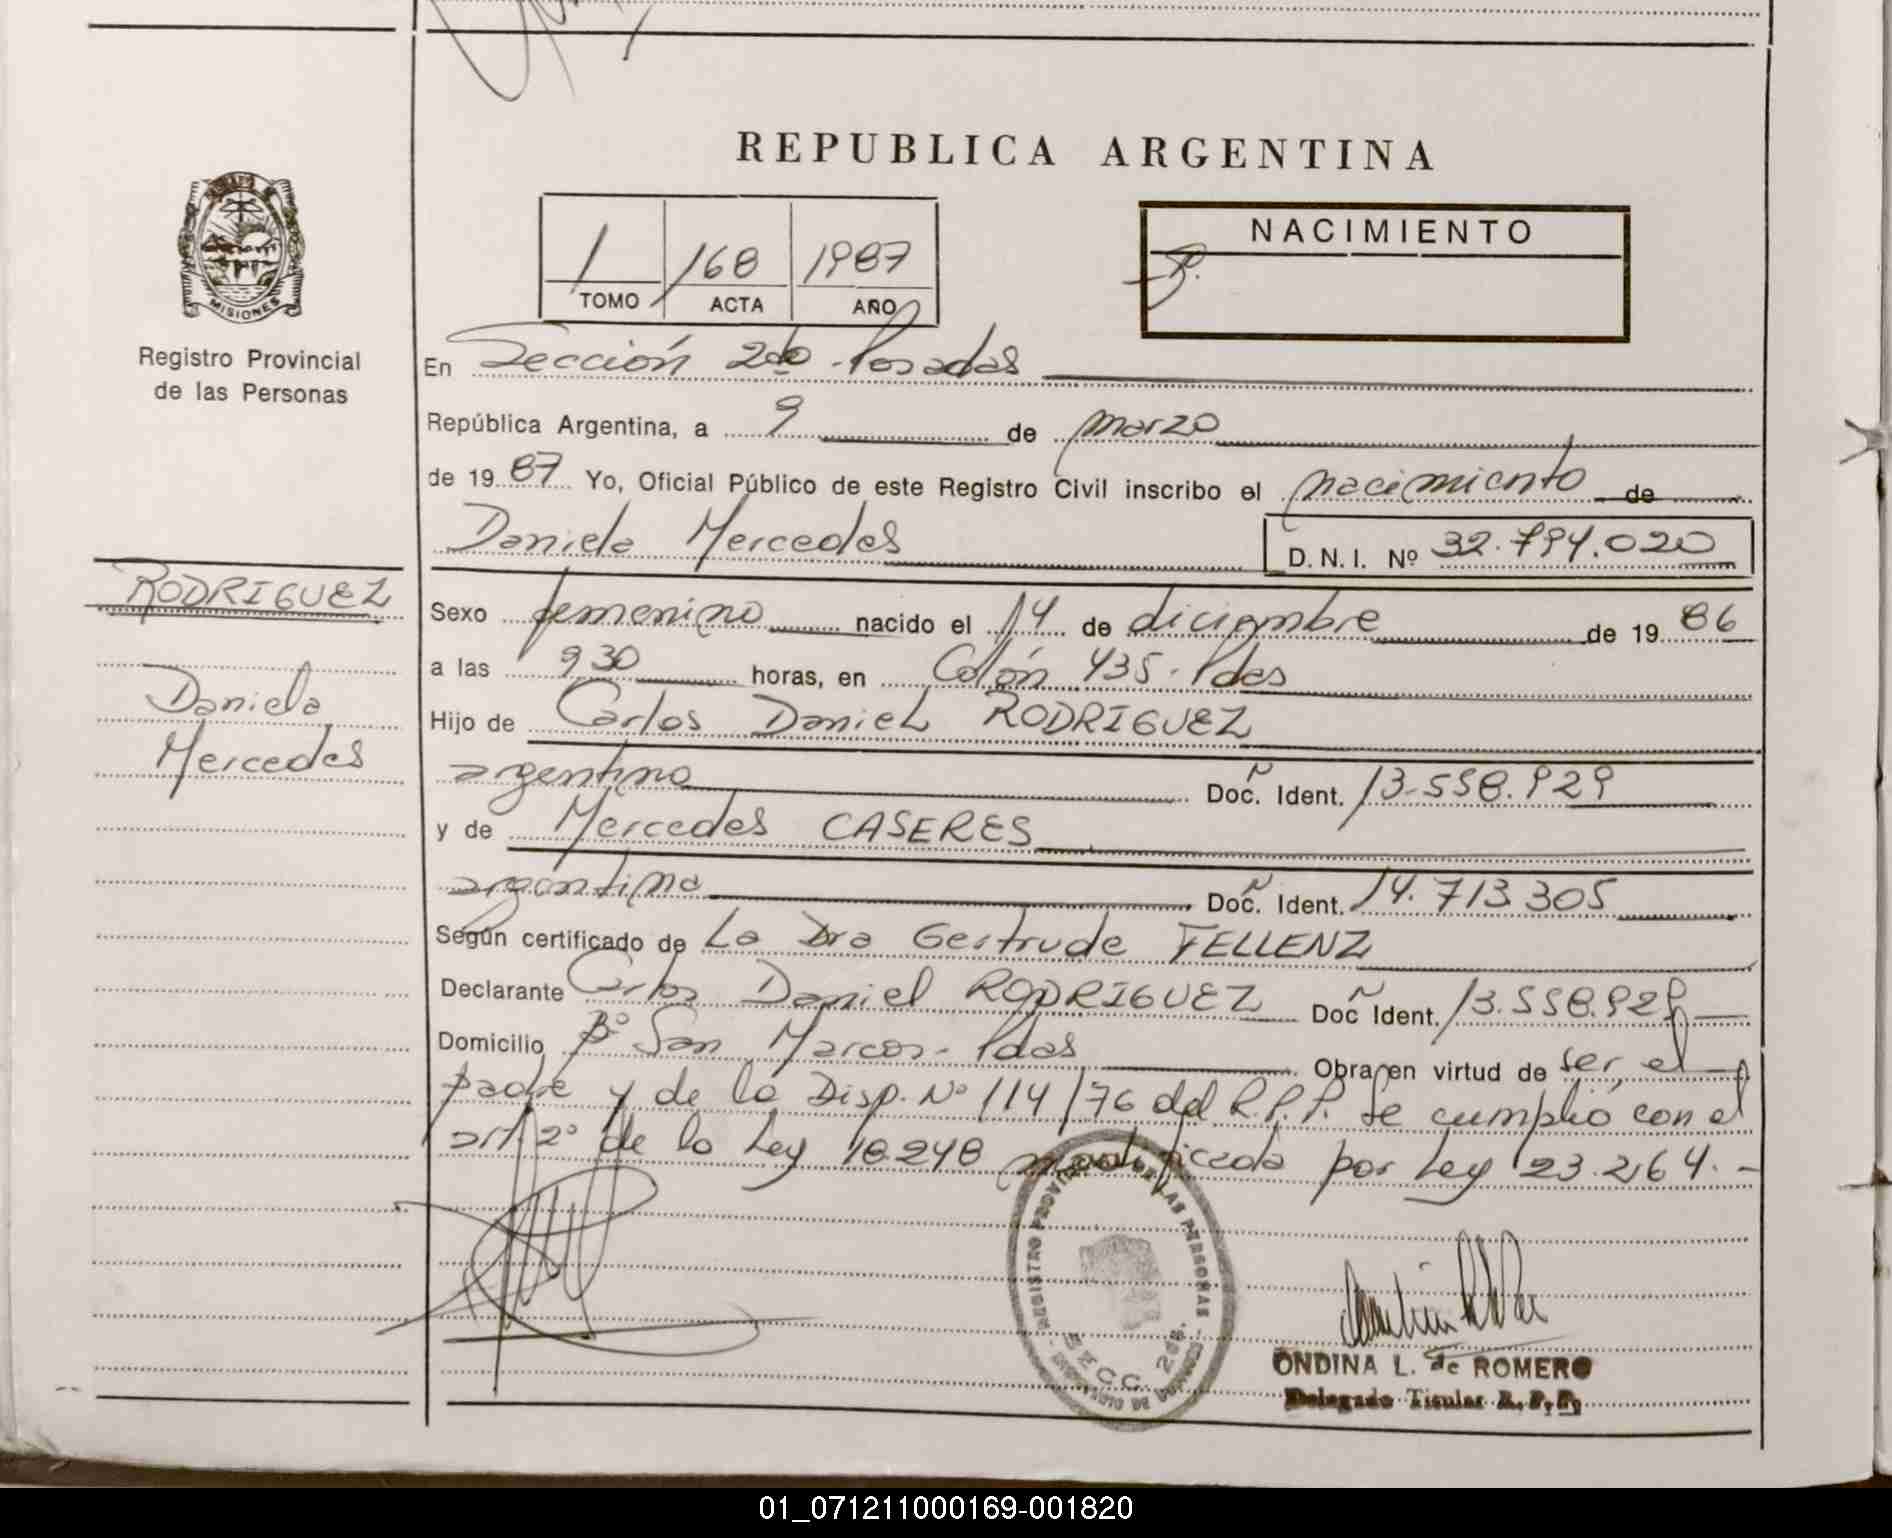 REPUBLICA ARGENTINA
MISIONES
Registro Provincial
de las Personas
1 168 1987
TOMO ACTA AÑO
NACIMIENTO
En Sección 2da Posadas
República Argentina, a 9 de marzo
de 1987 Yo, Oficial Público de este Registro Civil inscribo el nacimiento de
Daniela Mercedes D.N.I. Nº 32.794.020
RODRIGUEZ
Daniela
Mercedes
Sexo femenino nacido el 14 de diciembre de 1986
a las 9,30 horas, en Colón 435 - Pdas
Hijo de Carlos Daniel RODRIGUEZ
argentino Doc. Ident. 13.558.929
y de Mercedes CASERES
argentina Doc. Ident. 14.713.305
Según certificado de La Dra Gertrude FELLENZ
Declarante Carlos Daniel RODRIGUEZ Doc Ident. 13.558.929
Domicilio Bº San Marcos - Pdas Obra en virtud de ser el
padre y de la Disp. Nº 114/76 del R.P.P. Se cumplió con el
art. 2º de la Ley 18.248 modificada por Ley 23.264.-
SECC. 2da.
ONDINA L. de ROMERO
Delegado Titular R.P.P.
01_071211000169-001820